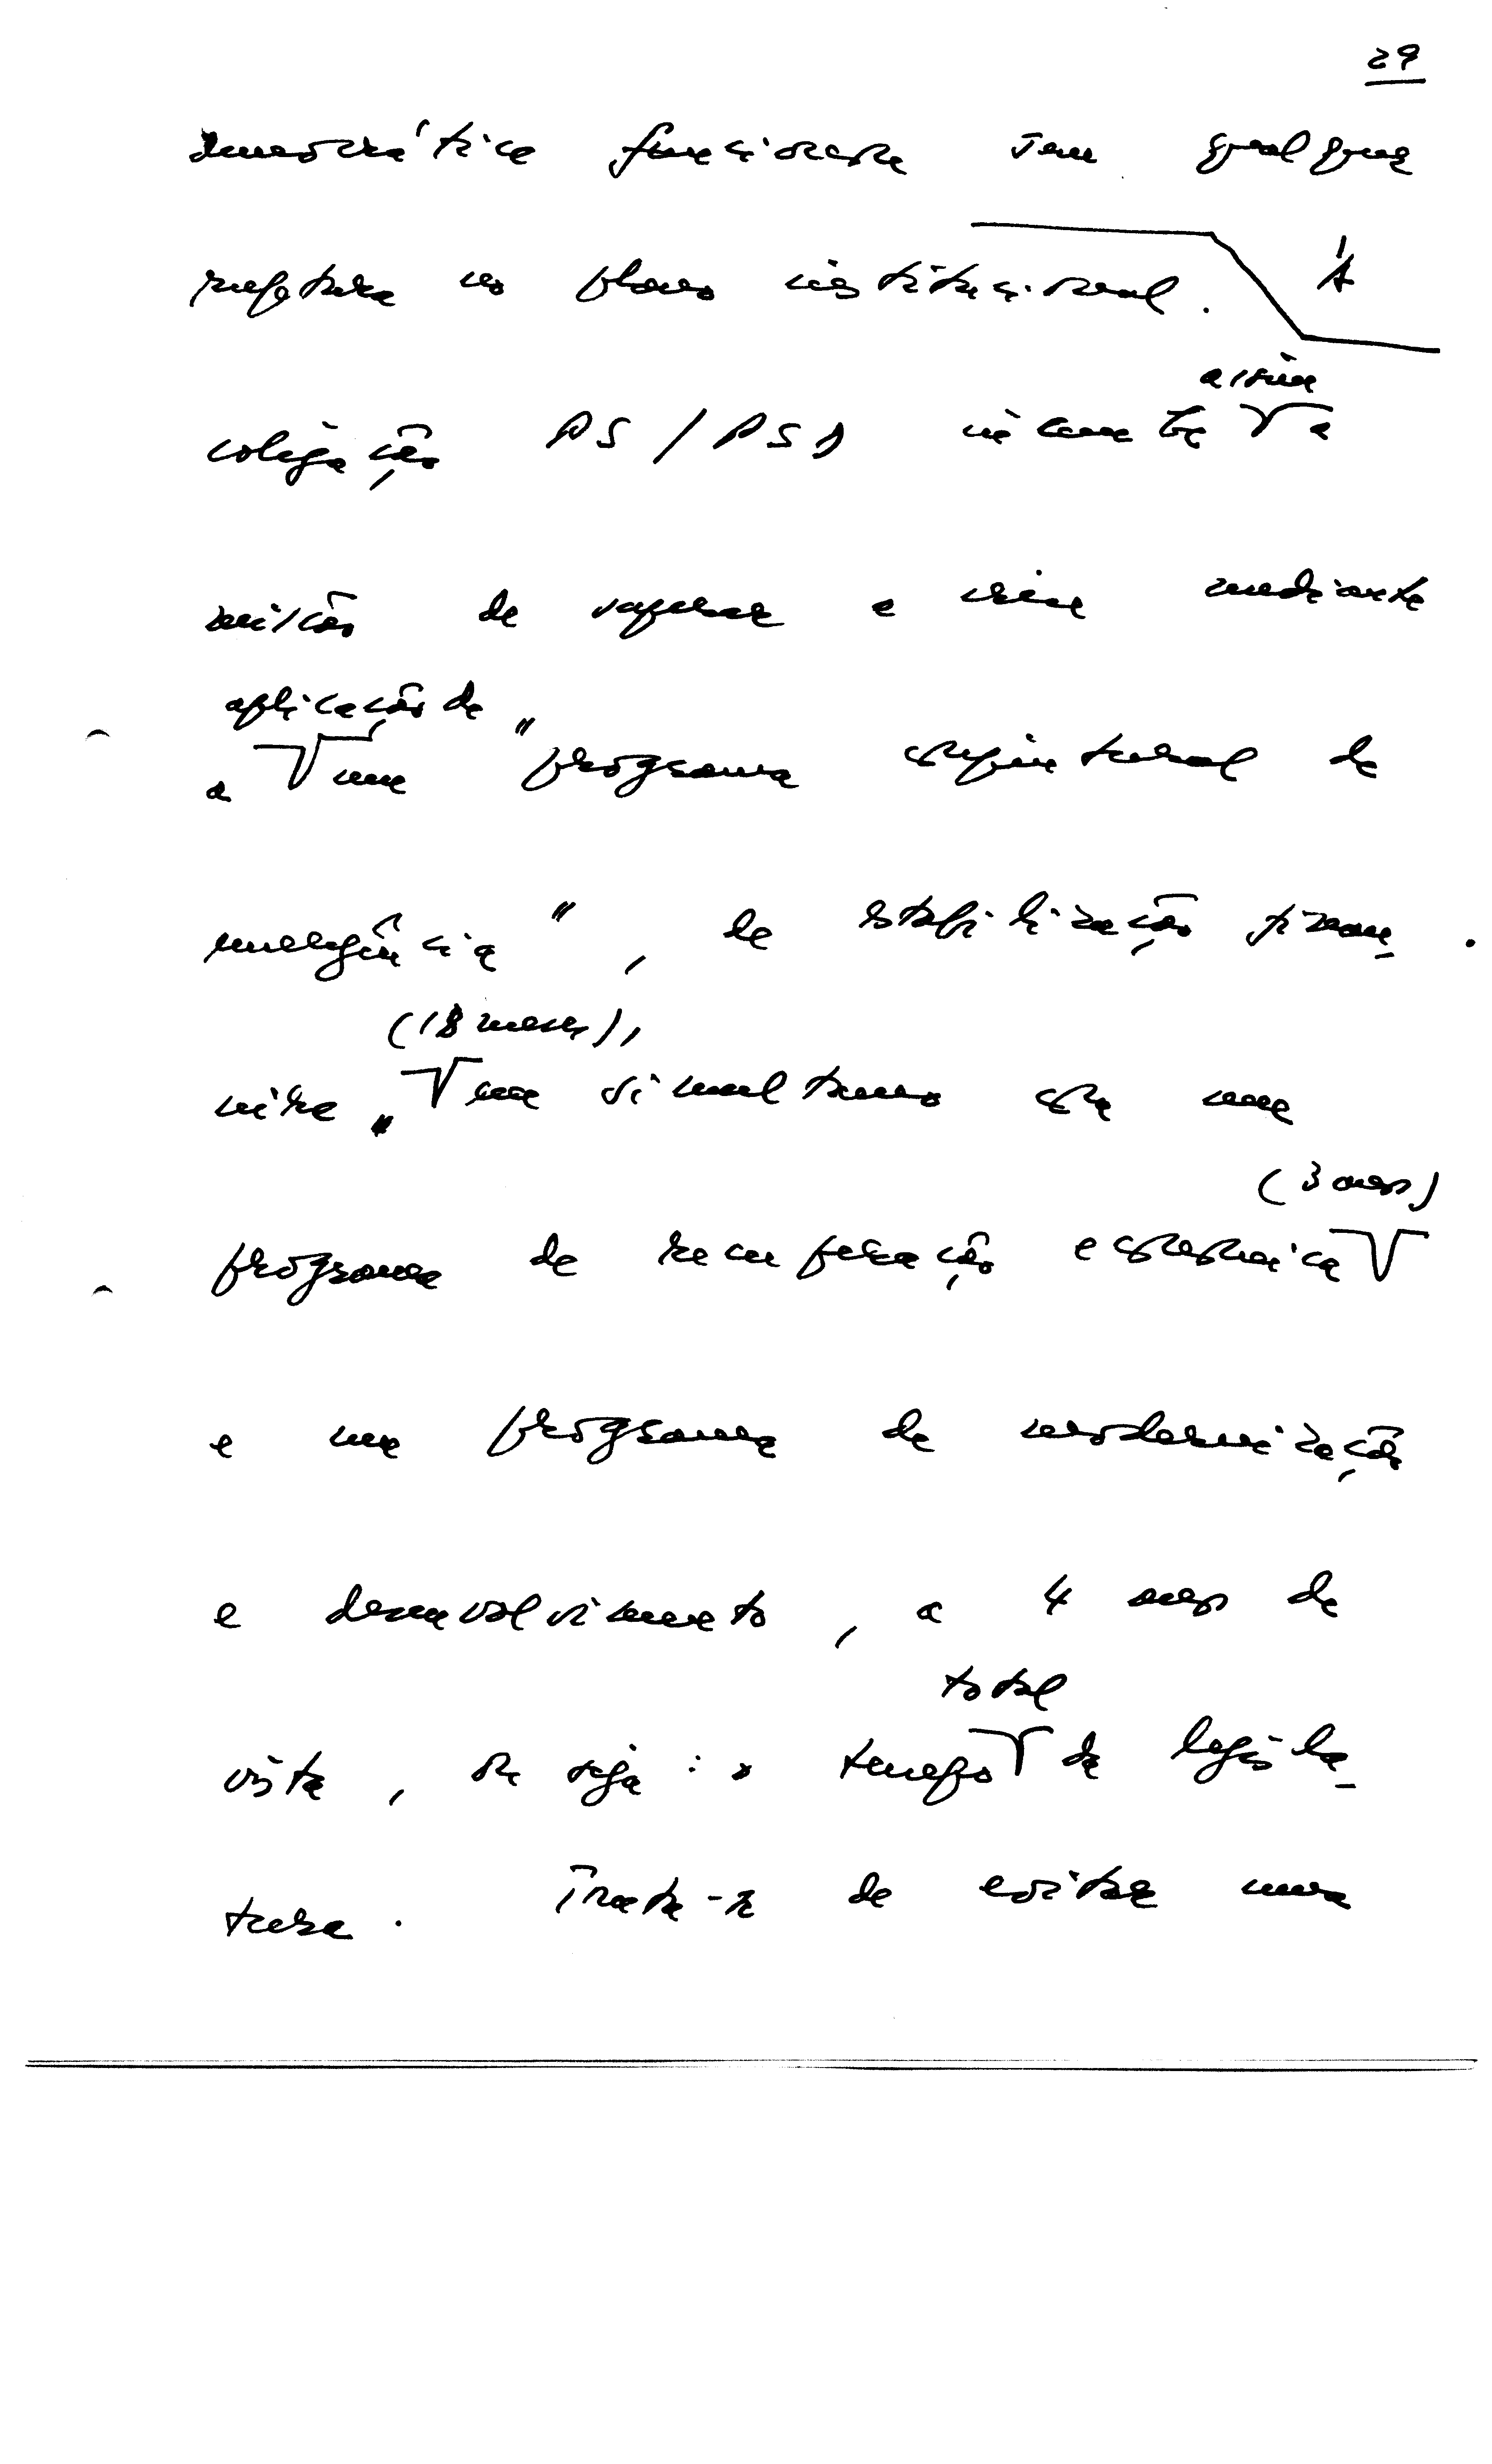 29
democrática funcionar sem qualquer
ruptura no plano institucional. À
coligação PS/PSD incumbe a
assim
missão de superar a crise mediante
aplicação de
a um "programa conjuntural de
emergência", de estabilização finan-
(18 meses),
ceira, em simultaneo com um
(3 anos)
programa de recuperação económica
e um programa de modernização
e desenvolvimento, a 4 anos de
total
vista, ou seja: o tempo da legisla-
tura. Trata-se de evitar uma